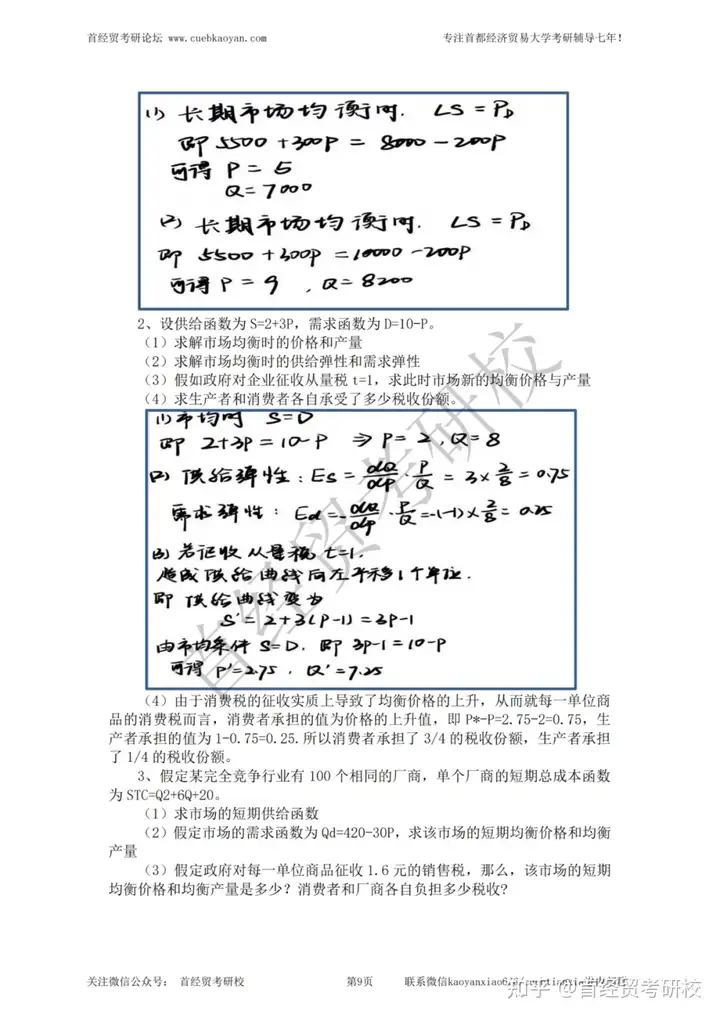 首经贸考研论坛 www.cuebkaoyan.com 专注首都经济贸易大学考研辅导七年!
(1) 长期市场均衡时. LS = PD
即 5500 + 300P = 8000 - 200P
可得 P = 5
Q = 7000
(2) 长期市场均衡时. LS = PD
即 5500 + 300P = 10000 - 200P
可得 P = 9 , Q = 8200
2、设供给函数为 S=2+3P, 需求函数为 D=10-P。
(1)求解市场均衡时的价格和产量
(2)求解市场均衡时的供给弹性和需求弹性
(3)假如政府对企业征收从量税 t=1, 求此时市场新的均衡价格与产量
(4)求生产者和消费者各自承受了多少税收份额。
(1) 市均时 S=D
即 2+3P = 10-P ⇒ P = 2, Q = 8
(2) 供给弹性: Es = dQ/dP · P/Q = 3 × 2/8 = 0.75
需求弹性: Ed = -dQ/dP · P/Q = -(-1) × 2/8 = 0.25
(3) 若征收从量税 t=1.
造成供给曲线向左平移1个单位.
即供给曲线变为
S' = 2+3(P-1) = 3P-1
由市均条件 S=D. 即 3P-1=10-P
可得 P'=2.75 , Q'=7.25
(4)由于消费税的征收实质上导致了均衡价格的上升, 从而就每一单位商
品的消费税而言, 消费者承担的值为价格的上升值, 即 P*-P=2.75-2=0.75, 生
产者承担的值为 1-0.75=0.25.所以消费者承担了 3/4 的税收份额, 生产者承担
了 1/4 的税收份额。
3、假定某完全竞争行业有 100 个相同的厂商, 单个厂商的短期总成本函数
为 STC=Q2+6Q+20。
(1)求市场的短期供给函数
(2)假定市场的需求函数为 Qd=420-30P, 求该市场的短期均衡价格和均衡
产量
(3)假定政府对每一单位商品征收 1.6 元的销售税, 那么, 该市场的短期
均衡价格和均衡产量是多少? 消费者和厂商各自负担多少税收?
首经贸考研校
关注微信公众号: 首经贸考研校 第9页 联系微信kaoyanxiao6
知乎 @首经贸考研校